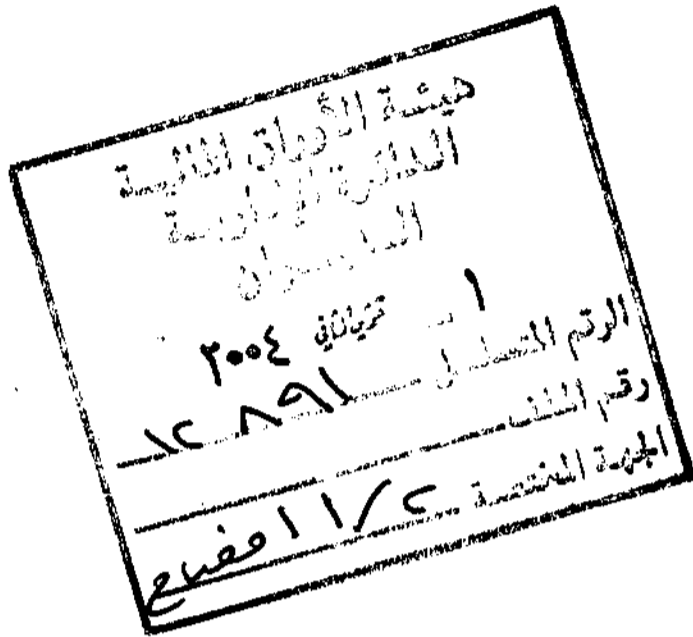 هيئة الأوراق المالية
الدائرة الإدارية
الديوان
١ - تشرين ثاني ٢٠٠٤
الرقم المتسلسل ١٢٨٩١
رقم الملف
الجهة المختصة ١١/٢ افصاح